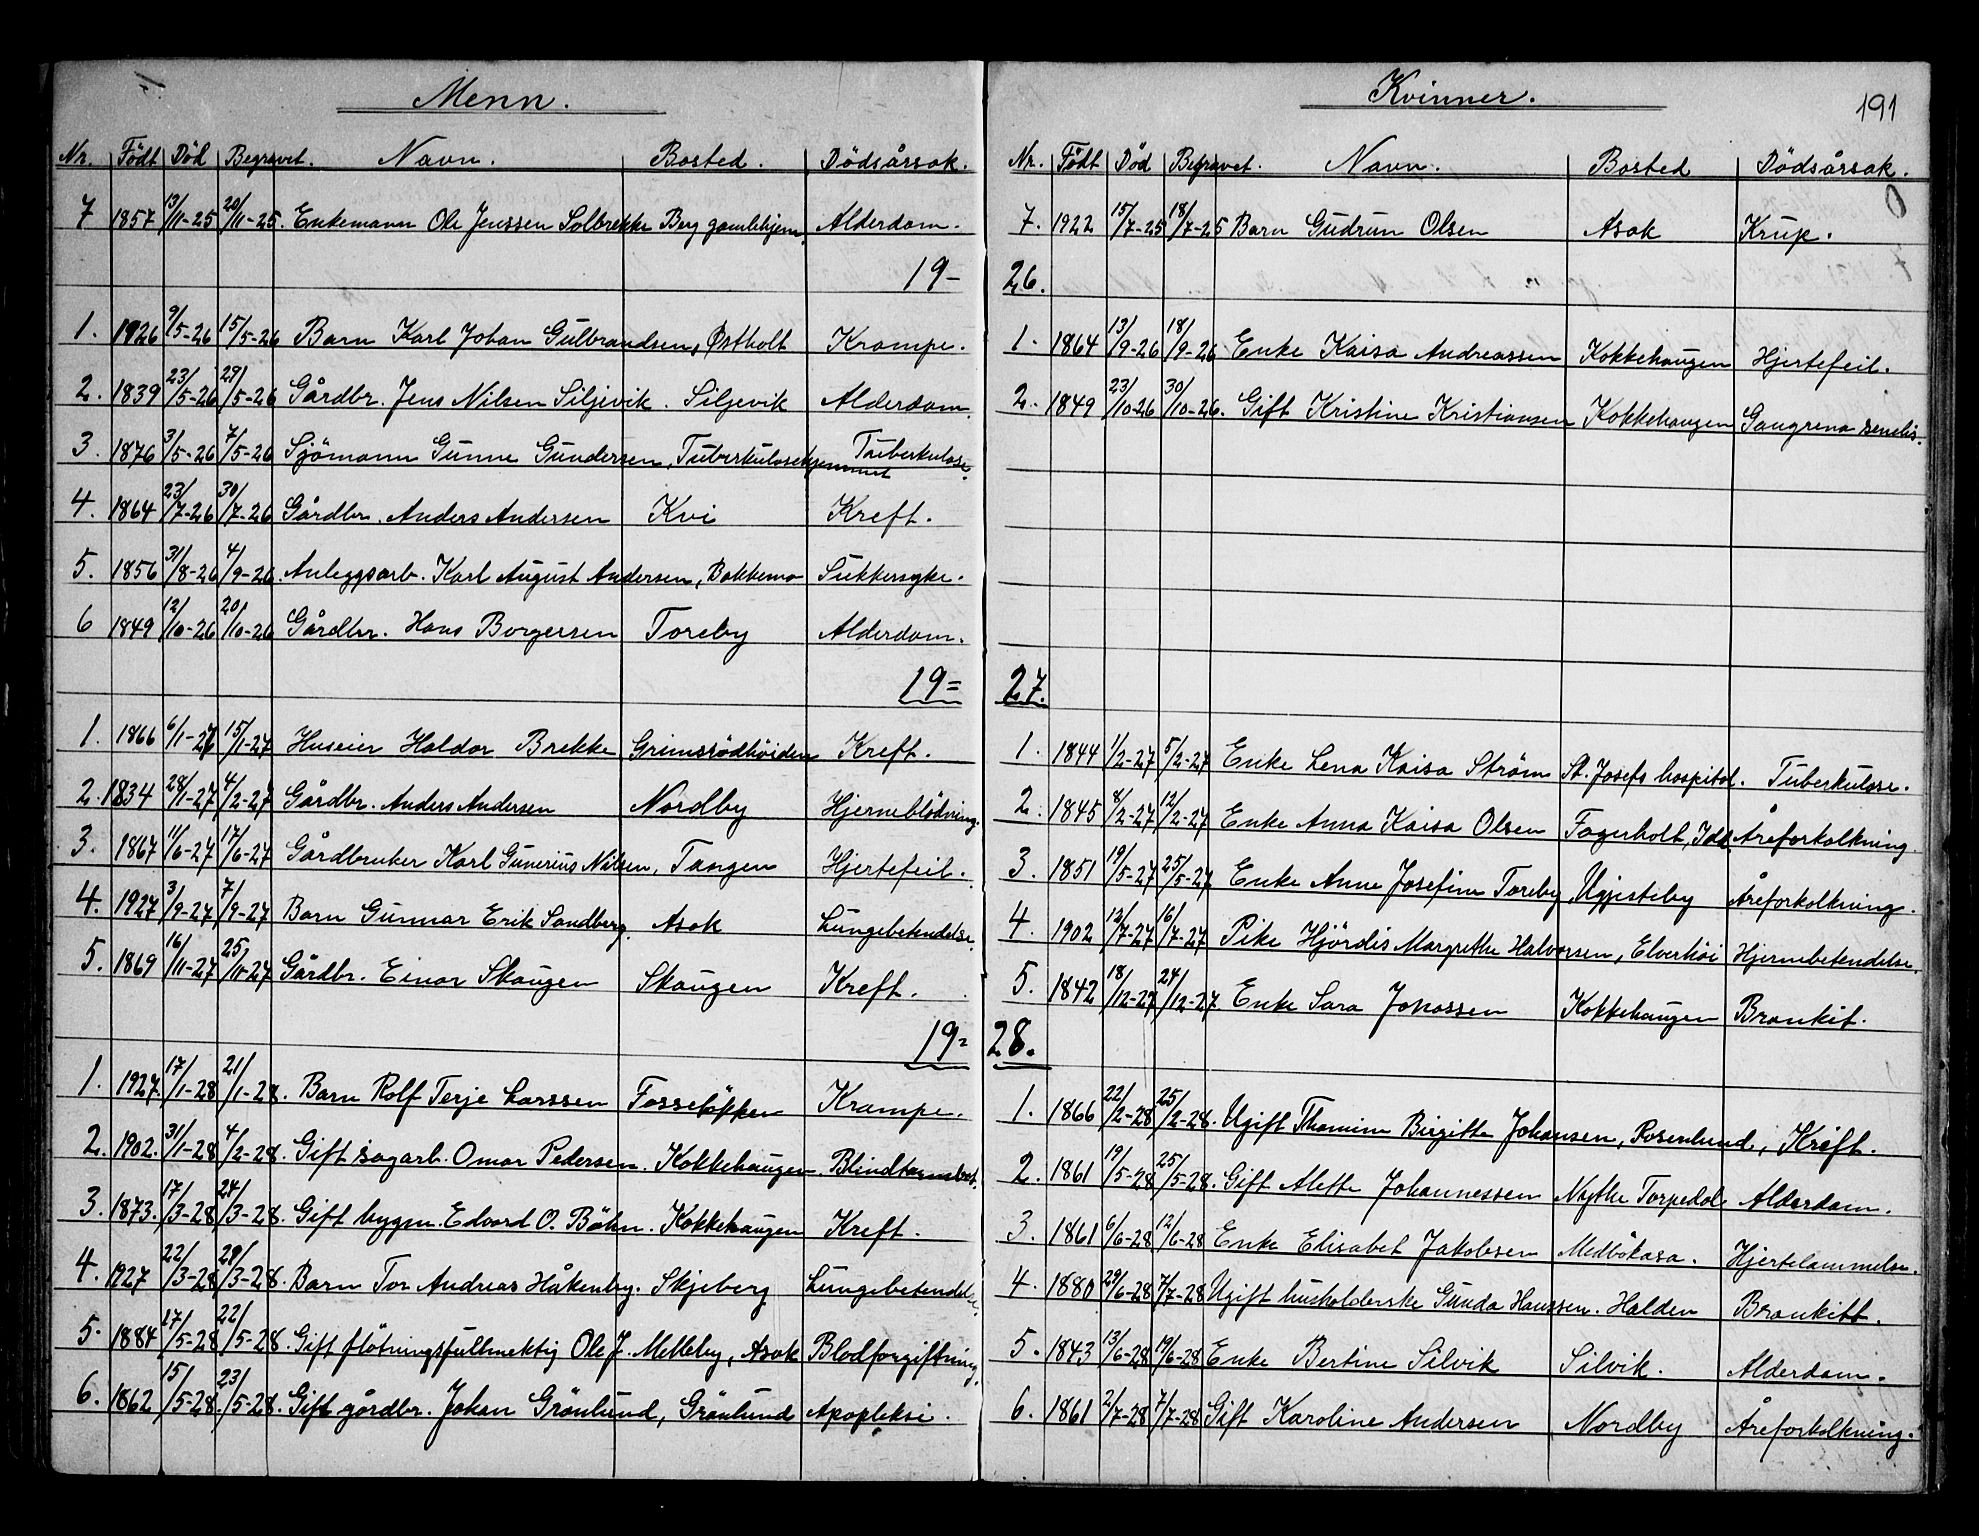 Menn.
Nr. Født Död Begravet. Navn. Bosted. Dödsårsok.
7 1857 13/11-25 20/11-25. Enkemann Ole Jenssen Solbrekke Berg gamlehjem. Alderdom.
19-
1. 1926 9/5-26 15/5-26 Barn Karl Johan Gulbrandsen, Østholt Krampe.
2. 1839 23/5-26 29/5-26 Gårdbr. Jens Nilsen Siljevik. Siljevik Alderdom.
3. 1876 3/5-26 7/5-26 Sjömann Gunne Gundersen, Tuberkulosehjemmet Tuberkulose.
4. 1864 23/7-26 30/7-26 Gårdbr. Anders Andersen Kvi Kreft.
5. 1856 31/8-26 4/9-26. Anleggsarb. Karl August Andersen, Bakkemo Sukkersyke.
6 1849 12/10-26 20/10-26 Gårdbr. Hans Borgersen Toreby Alderdom.
19=
1. 1866 6/1-27 15/1-27 Huseier Haldor Brekke Grimsrödhöiden Kreft.
2. 1834 28/1-27 4/2-27 Gårdbr. Anders Andersen Nordby Hjerneblödning.
3. 1867 11/6-27 17/6-27 Gårdbruker Karl Gunerius Nilsen, Tangen Hjertefeil.
4. 1927 3/9-27 7/9-27 Barn Gunnar Erik Sandberg. Asak Lungebetendelse.
5. 1869 16/11-27 25/11-27 Gårdbr. Einar Skaugen Skaugen Kreft.
19=
1. 1927. 17/1-28 21/1-28. Barn Rolf Terje Larssen Fosselökken Krampe.
2. 1902. 31/1-28 4/2-28. Gift sagarb. Omar Pedersen. Kokkehaugen. Blindtarmsbet.
3. 1873. 17/3-28 24/3-28. Gift bygm. Edvard O. Böhn. Kokkehaugen Kreft.
4. 1927 22/3-28 29/3-28. Barn Tor Andreas Håkenby. Skjeberg Lungebetendelse.
5. 1884 17/5-28 22/5-28. Gift flötningsfullmektig Ole J. Melleby, Asak Blodforgiftning.
6. 1862 15/5-28. 23/5-28. Gift gårdbr. Johan Grönlund, Grönlund Apopleksi.
Kvinner.
191
Nr. Født Död Begravet. Navn. Bosted Dödsårsak.
7. 1922 15/7-25 18/7-25 Barn Gudrun Olsen Asak Krup.
26.
1. 1864 13/9-26 18/9-26 Enke Kaisa Andreassen Kokkehaugen Hjertefeil.
2. 1849 23/10-26 30/10-26. Gift Kristine Kristiansen Kokkehaugen Gangrena senelis.
27.
1. 1844 1/2-27 5/2-27 Enke Lena Kaisa Ström St. Josefs hospital. Tuberkulose.
2. 1845 8/2-27 12/2-27 Enke Anna Kaisa Olsen Fagerholt, Idd. Åreforkalkning.
3. 1851 19/5-27 25/5-27 Enke Anne Josefine Toreby, Ugjesteby Åreforkalkning.
4. 1902 12/7-27 16/7-27 Pike Hjördis Margrethe Halvorsen, Elverhöi Hjernebetendelse.
5. 1842 18/12-27 24/12-27 Enke Sara Jonassen Kokkehaugen Bronkit.
28.
1. 1866 22/2-28 25/2-28. Ugift Thomine Birgitte Johansen, Rosenlund, Kreft.
2. 1861 19/5-28 25/5-28. Gift Alette Johannessen Torpedal Alderdom.
3. 1861 6/6-28 12/6-28 Enke Elisabet Jakobsen Medbökasa. Hjertelammelse.
4. 1880 29/6-28 7/7-28 Ugift husholderske Gunda Hanssen. Halden Bronkitt.
5. 1843 13/6-28 19/6-28 Enke Bertine Silvik Silvik. Alderdom.
6. 1861 2/7-28 7/7-28 Gift Karoline Andersen Nordby Åreforkalkning.